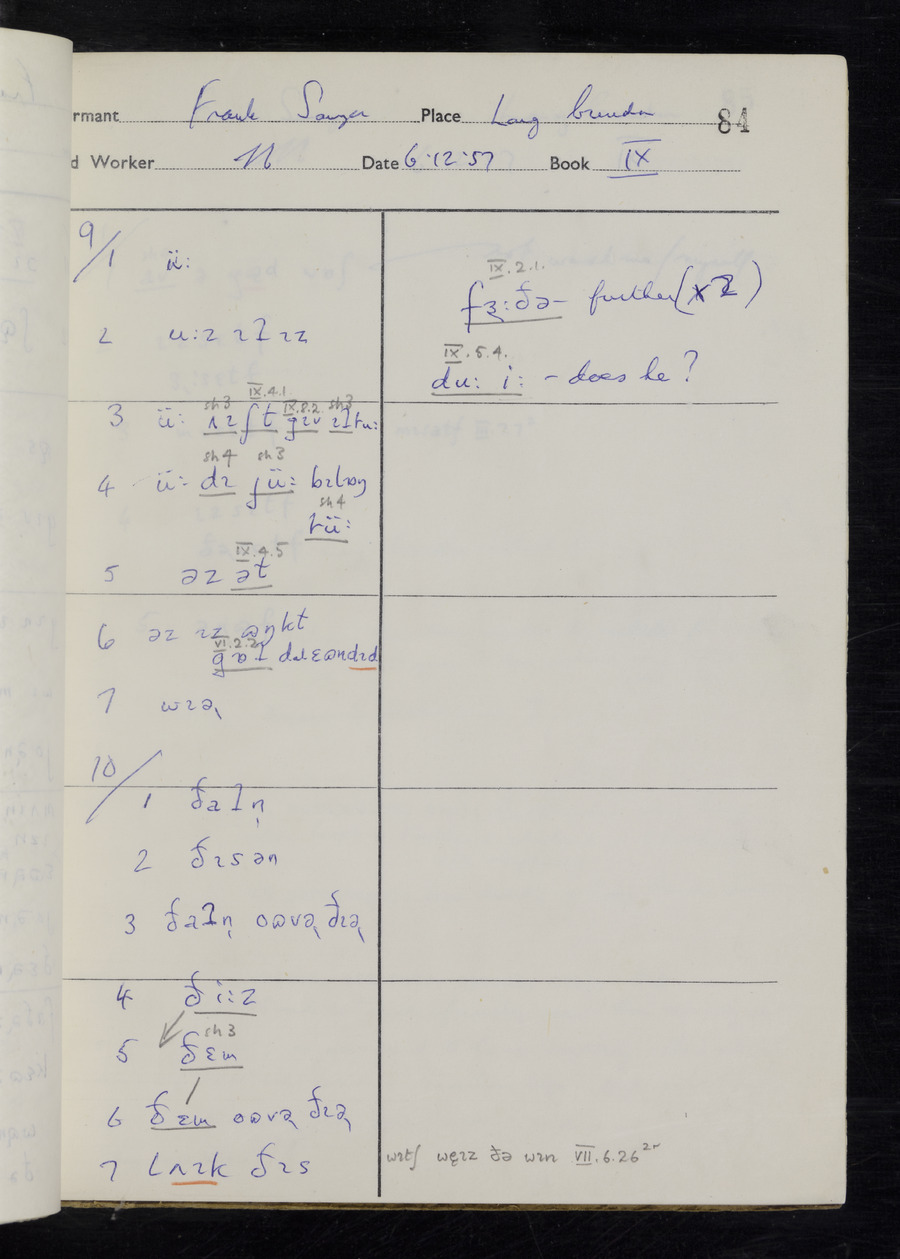 rmant Frank Sawyer Place Long bredon 84
d Worker N Date 6·12·57 Book IX
9/1 ü:
2 u:z ɪƖ ɪz
3 ü: ʌɪʃt gɪv ɪƖtu:
sh3 IX.4.1. IX.8.2 sh3
4 ü: dɪ jü: bɪlɒŋ
sh4 sh3
tü:
sh4
5 əz ət
IX.4.5
6 əz ɪz ɷŋkt
gɒƖ daɛɷndɪd
VI.2.2
7 wɪə̢
10/
1 ðaƖn̩
2 ðɪsən
3 ðaƖn̩ oɷvə̢ ðɪə̢
4 ði:z
5 ðɛm
sh3
6 ðɛm oɷvə̢ ðɪə̢
7 lʌɪk ðɪs
IX.2.1.
fɜ:ðə – further (x2)
IX.5.4.
du: i: – does he?
wɪtʃ wɛ̢ɪz ðə wɪn VII.6.26